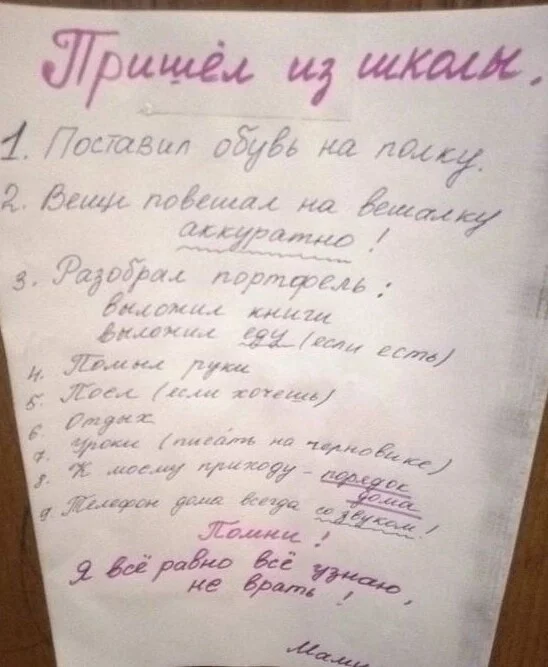 Пришёл из школы.
1. Поставил обувь на полку.
2. Вещи повешал на вешалку
аккуратно!
3. Разобрал портфель:
выложил книги
выложил еду (если есть)
4. Помыл руки
5. Поел (если хочешь)
6. Отдых
7. уроки (писать на черновике)
8. К моему приходу - порядок
дома
9. Телефон дома всегда со звуком!
Помни!
Я всё равно всё узнаю,
не врать!